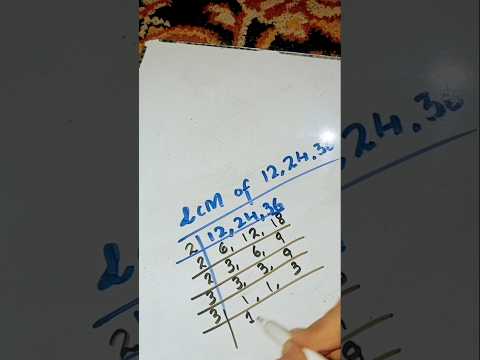 LCM of 12, 24, 36
2 | 12, 24, 36
2 | 6, 12, 18
2 | 3, 6, 9
3 | 3, 3, 9
3 | 1, 1, 3
1